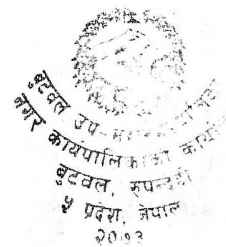 बुटवल उप-महानगरपालिका
नगर कार्यपालिकाको कार्यालय
बुटवल, रुपन्देही
५ प्रदेश, नेपाल
२०७३